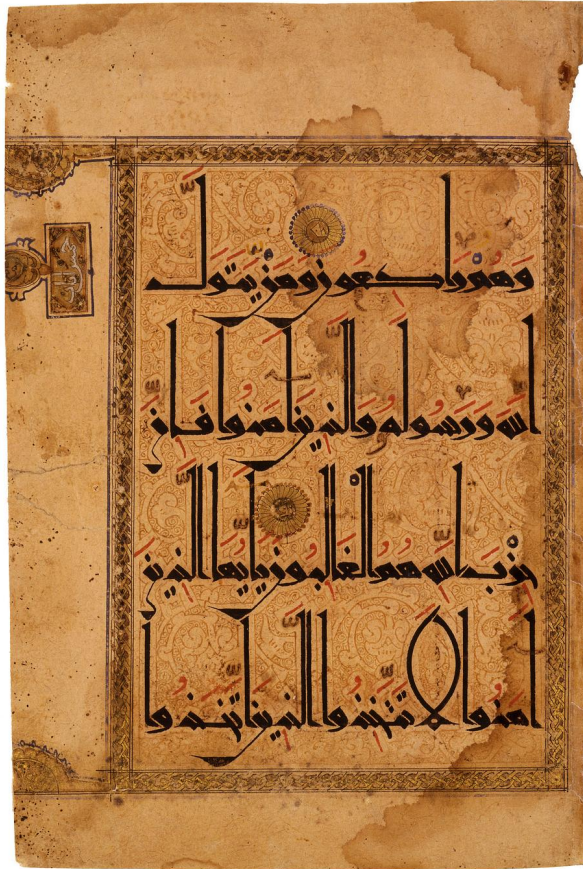 وَهُمْ رَاكِعُونَ وَمَنْ يَتَوَلَّ
اللّٰهَ وَرَسُولَهُ وَالَّذِينَ اٰمَنُوا فَاِنَّ
حِزْبَ اللّٰهِ هُمُ الْغَالِبُونَ يَا اَيُّهَا الَّذِينَ
اٰمَنُوا لَا تَتَّخِذُوا الَّذِينَ اتَّخَذُوا